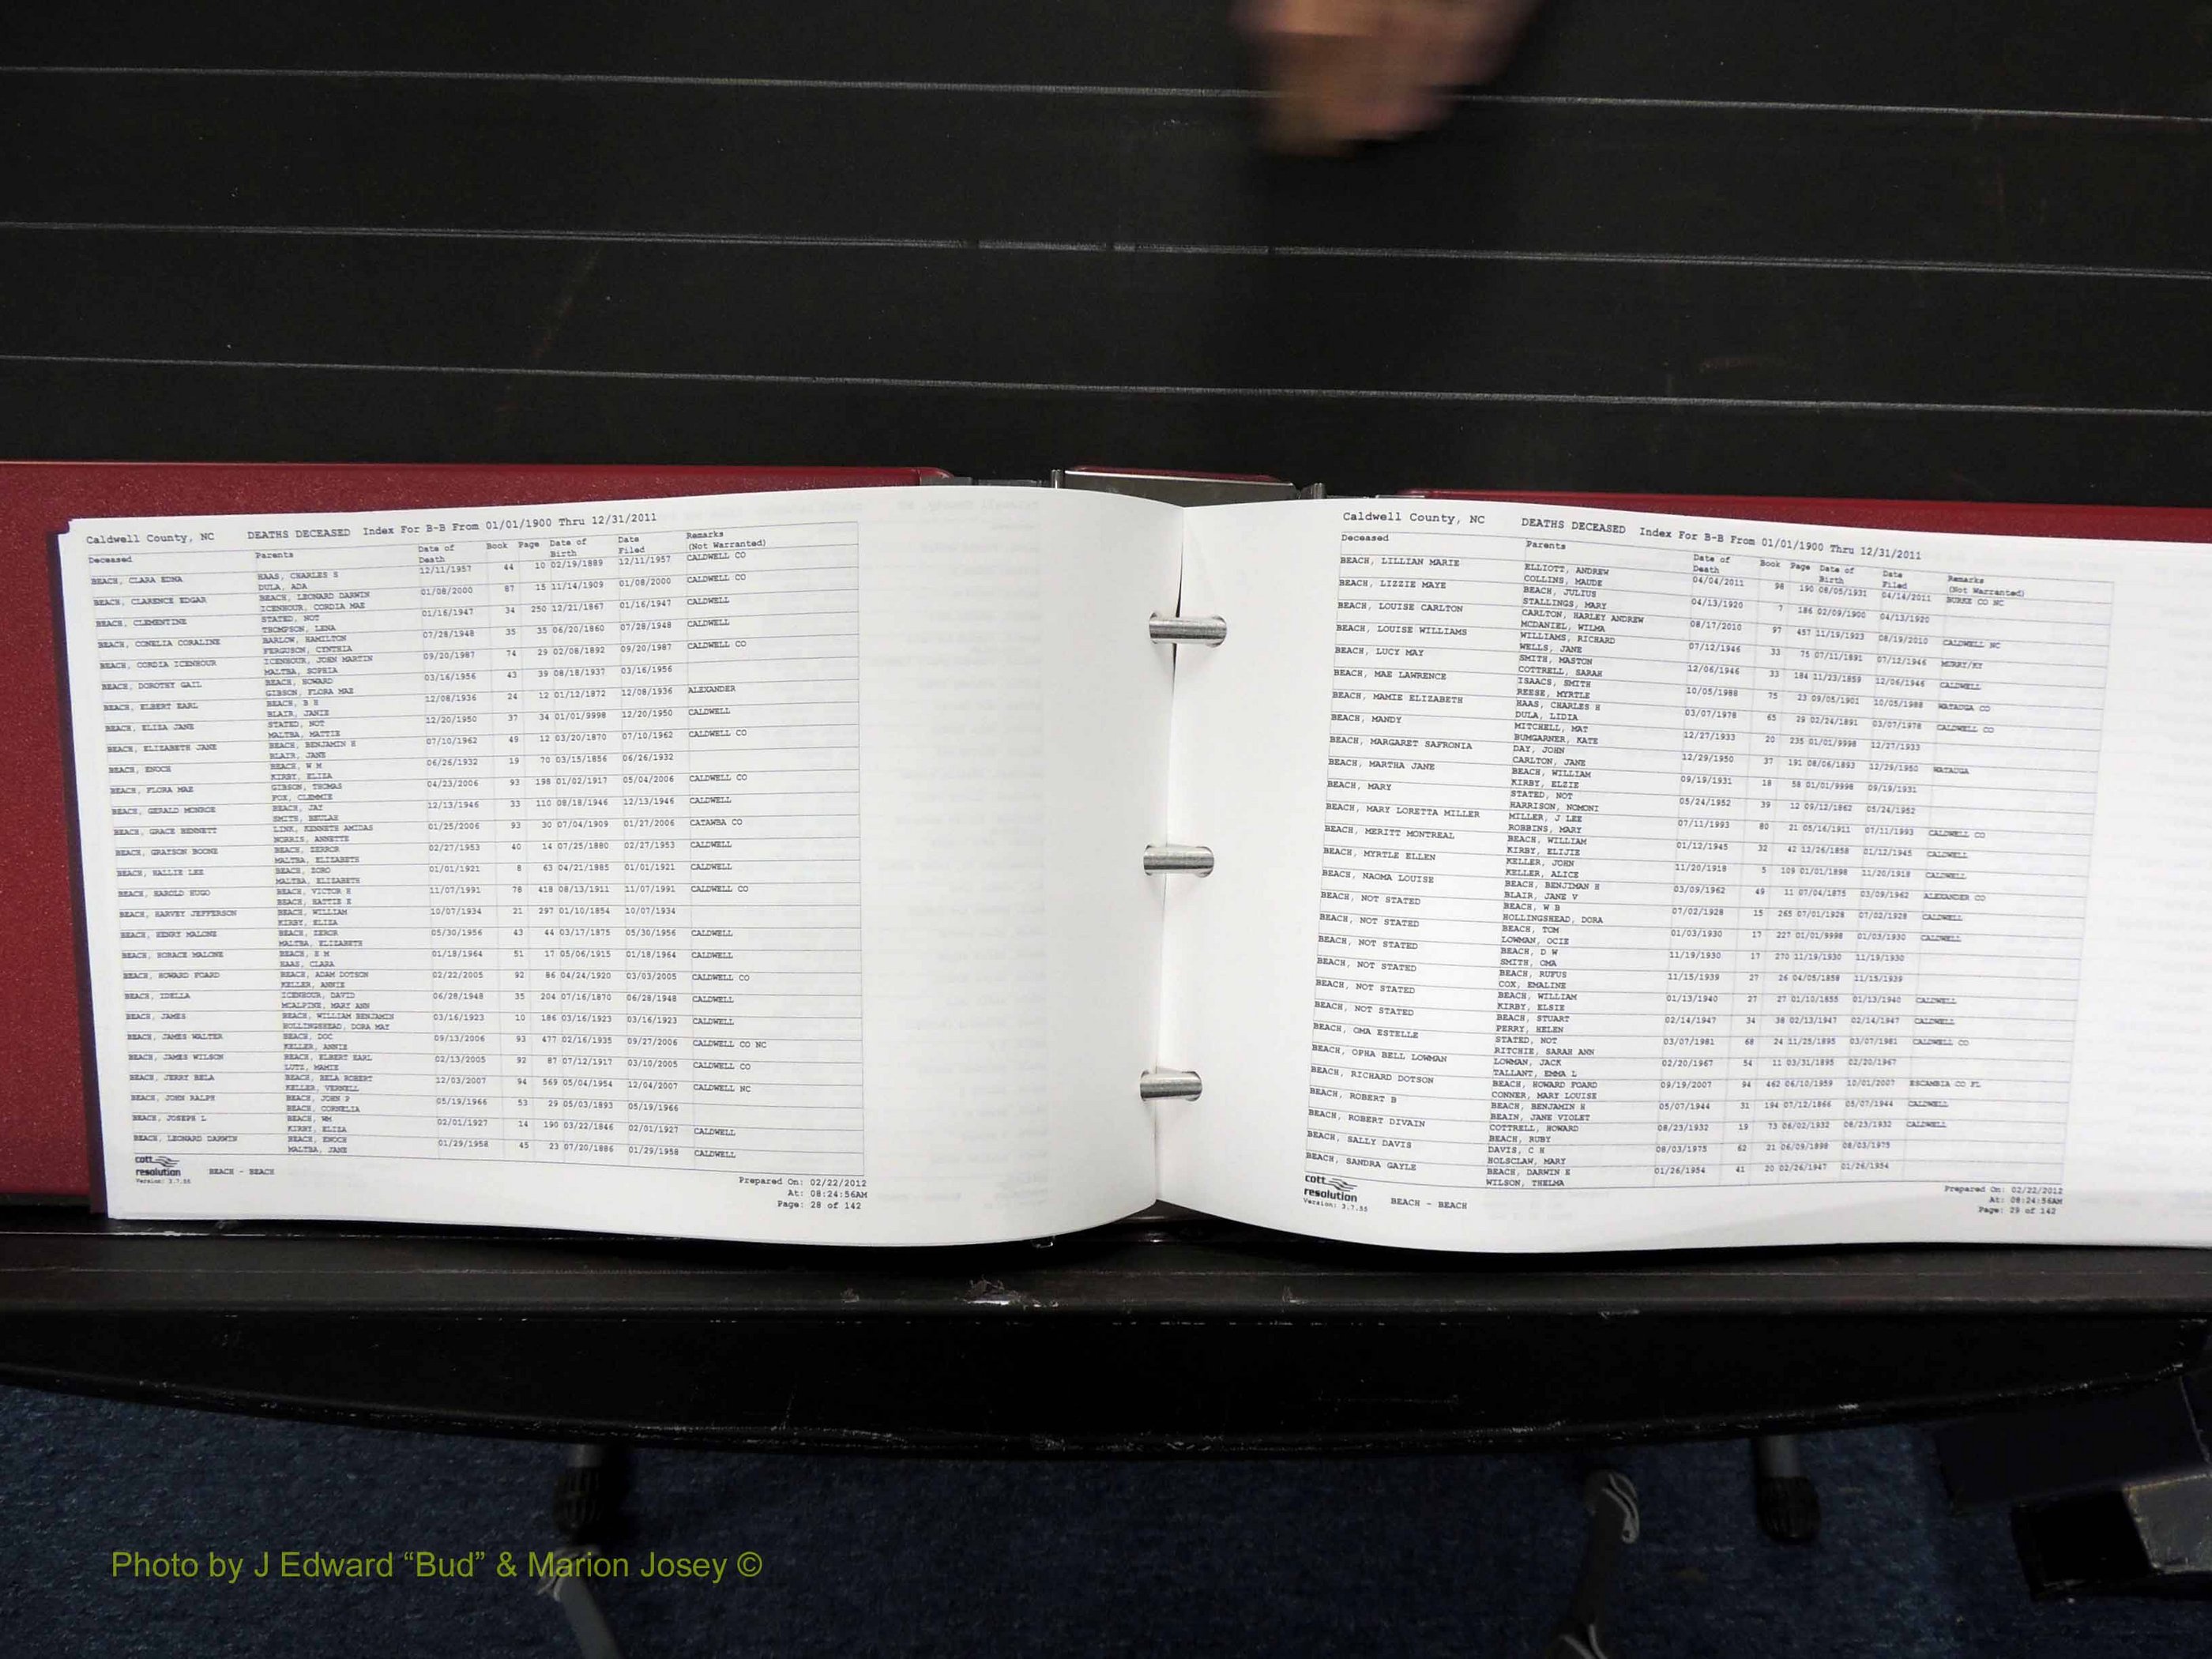 Caldwell County, NC DEATHS DECEASED Index For B-B From 01/01/1900 Thru 12/31/2011
Deceased Parents Date of Death Book Page Date of Birth Date Filed Remarks (Not Warranted)
BEACH, CLARA EDNA HAAS, CHARLES S 12/11/1957 44 10 02/19/1889 12/11/1957 CALDWELL CO
DULA, ADA
BEACH, CLARENCE EDGAR BEACH, LEONARD DARWIN 01/08/2000 87 15 11/14/1909 01/08/2000 CALDWELL CO
ICENHOUR, CORDIA MAE
BEACH, CLEMENTINE STATED, NOT 01/16/1947 34 250 12/21/1867 01/16/1947 CALDWELL
THOMPSON, LENA
BEACH, CONELIA CORALINE BARLOW, HAMILTON 07/28/1948 35 35 06/20/1860 07/28/1948 CALDWELL
FERGUSON, CYNTHIA
BEACH, CORDIA ICENHOUR ICENHOUR, JOHN MARTIN 09/20/1987 74 29 02/08/1892 09/20/1987 CALDWELL CO
MALTBA, SOPHIA
BEACH, DOROTHY GAIL BEACH, HOWARD 03/16/1956 43 39 08/18/1937 03/16/1956
GIBSON, FLORA MAE
BEACH, ELBERT EARL BEACH, B H 12/08/1936 24 12 01/12/1872 12/08/1936 ALEXANDER
BLAIR, JANIE
BEACH, ELIZA JANE STATED, NOT 12/20/1950 37 34 01/01/9998 12/20/1950 CALDWELL
MALTBA, MATTIE
BEACH, ELIZABETH JANE BEACH, BENJAMIN H 07/10/1962 49 12 03/20/1870 07/10/1962 CALDWELL CO
BLAIR, JANE
BEACH, ENOCH BEACH, W M 06/26/1932 19 70 03/15/1856 06/26/1932
KIRBY, ELIZA
BEACH, FLORA MAE GIBSON, THOMAS 04/23/2006 93 198 01/02/1917 05/04/2006 CALDWELL CO
FOX, CLEMMIE
BEACH, GERALD MONROE BEACH, JAY 12/13/1946 33 110 08/18/1946 12/13/1946 CALDWELL
SMITH, BEULAH
BEACH, GRACE BENNETT LINK, KENNETH AMIDAS 01/25/2006 93 30 07/04/1909 01/27/2006 CATAWBA CO
NORRIS, ANNETTE
BEACH, GRAYSON BOONE BEACH, ZERROR 02/27/1953 40 14 07/25/1880 02/27/1953 CALDWELL
MALTBA, ELIZABETH
BEACH, HALLIE LEE BEACH, ZORO 01/01/1921 8 63 04/21/1885 01/01/1921 CALDWELL
MALTBA, ELIZABETH
BEACH, HAROLD HUGO BEACH, VICTOR H 11/07/1991 78 418 08/13/1911 11/07/1991 CALDWELL CO
BEACH, HATTIE E
BEACH, HARVEY JEFFERSON BEACH, WILLIAM 10/07/1934 21 297 01/10/1854 10/07/1934
KIRBY, ELIZA
BEACH, HENRY MALONE BEACH, ZEROR 05/30/1956 43 44 03/17/1875 05/30/1956 CALDWELL
MALTBA, ELIZABETH
BEACH, HORACE MALONE BEACH, H M 01/18/1964 51 17 05/06/1915 01/18/1964 CALDWELL
HAAS, CLARA
BEACH, HOWARD FOARD BEACH, ADAM DOTSON 02/22/2005 92 86 04/24/1920 03/03/2005 CALDWELL CO
KELLER, ANNIE
BEACH, IDELLA ICENHOUR, DAVID 06/28/1948 35 204 07/16/1870 06/28/1948 CALDWELL
MCALPINE, MARY ANN
BEACH, JAMES BEACH, WILLIAM BENJAMIN 03/16/1923 10 186 03/16/1923 03/16/1923 CALDWELL
HOLLINGSHEAD, DORA MAY
BEACH, JAMES WALTER BEACH, DOC 09/13/2006 93 477 02/16/1935 09/27/2006 CALDWELL CO NC
KELLER, ANNIE
BEACH, JAMES WILSON BEACH, ELBERT EARL 02/13/2005 92 87 07/12/1917 03/10/2005 CALDWELL CO
LUTZ, MAMIE
BEACH, JERRY BELA BEACH, BELA ROBERT 12/03/2007 94 569 05/04/1954 12/04/2007 CALDWELL NC
KELLER, VERNELL
BEACH, JOHN RALPH BEACH, JOHN P 05/19/1966 53 29 05/03/1893 05/19/1966
BEACH, CORNELIA
BEACH, JOSEPH L BEACH, WM 02/01/1927 14 190 03/22/1846 02/01/1927 CALDWELL
KIRBY, ELIZA
BEACH, LEONARD DARWIN BEACH, ENOCH 01/29/1958 45 23 07/20/1886 01/29/1958 CALDWELL
MALTBA, JANE
cott resolution
Version: 3.7.55
BEACH - BEACH
Prepared On: 02/22/2012
At: 08:24:56AM
Page: 28 of 142
Caldwell County, NC DEATHS DECEASED Index For B-B From 01/01/1900 Thru 12/31/2011
Deceased Parents Date of Death Book Page Date of Birth Date Filed Remarks (Not Warranted)
BEACH, LILLIAN MARIE ELLIOTT, ANDREW 04/04/2011 98 190 08/05/1931 04/14/2011 BURKE CO NC
COLLINS, MAUDE
BEACH, LIZZIE MAYE BEACH, JULIUS 04/13/1920 7 186 02/09/1900 04/13/1920
STALLINGS, MARY
BEACH, LOUISE CARLTON CARLTON, HARLEY ANDREW 08/17/2010 97 457 11/19/1923 08/19/2010 CALDWELL NC
MCDANIEL, WILMA
BEACH, LOUISE WILLIAMS WILLIAMS, RICHARD 07/12/1946 33 75 07/11/1891 07/12/1946 MURRY/KY
WELLS, JANE
BEACH, LUCY MAY SMITH, MASTON 12/06/1946 33 184 11/23/1859 12/06/1946 CALDWELL
COTTRELL, SARAH
BEACH, MAE LAWRENCE ISAACS, SMITH 10/05/1988 75 23 09/05/1901 10/05/1988 WATAUGA CO
REESE, MYRTLE
BEACH, MAMIE ELIZABETH HAAS, CHARLES H 03/07/1978 65 29 02/24/1891 03/07/1978 CALDWELL CO
DULA, LIDIA
BEACH, MANDY MITCHELL, MAT 12/27/1933 20 235 01/01/9998 12/27/1933
BUMGARNER, KATE
BEACH, MARGARET SAFRONIA DAY, JOHN 12/29/1950 37 191 08/06/1893 12/29/1950 WATAUGA
CARLTON, JANE
BEACH, MARTHA JANE BEACH, WILLIAM 09/19/1931 18 58 01/01/9998 09/19/1931
KIRBY, ELZIE
BEACH, MARY STATED, NOT 05/24/1952 39 12 09/12/1862 05/24/1952
HARRISON, NOMONI
BEACH, MARY LORETTA MILLER MILLER, J LEE 07/11/1993 80 21 05/16/1911 07/11/1993 CALDWELL CO
ROBBINS, MARY
BEACH, MERITT MONTREAL BEACH, WILLIAM 01/12/1945 32 42 12/26/1858 01/12/1945 CALDWELL
KIRBY, ELIJIE
BEACH, MYRTLE ELLEN KELLER, JOHN 11/20/1918 5 109 01/01/1898 11/20/1918 CALDWELL
KELLER, ALICE
BEACH, NAOMA LOUISE BEACH, BENJIMAN H 03/09/1962 49 11 07/04/1875 03/09/1962 ALEXANDER CO
BLAIR, JANE V
BEACH, NOT STATED BEACH, W B 07/02/1928 15 265 07/01/1928 07/02/1928 CALDWELL
HOLLINGSHEAD, DORA
BEACH, NOT STATED BEACH, TOM 01/03/1930 17 227 01/01/9998 01/03/1930 CALDWELL
LOWMAN, OCIE
BEACH, NOT STATED BEACH, D W 11/19/1930 17 270 11/19/1930 11/19/1930
SMITH, OMA
BEACH, NOT STATED BEACH, RUFUS 11/15/1939 27 26 04/05/1858 11/15/1939
COX, EMALINE
BEACH, NOT STATED BEACH, WILLIAM 01/13/1940 27 27 01/10/1855 01/13/1940 CALDWELL
KIRBY, ELSIE
BEACH, NOT STATED BEACH, STUART 02/14/1947 34 38 02/13/1947 02/14/1947 CALDWELL
PERRY, HELEN
BEACH, OMA ESTELLE STATED, NOT 03/07/1981 68 24 11/25/1895 03/07/1981 CALDWELL CO
RITCHIE, SARAH ANN
BEACH, OPHA BELL LOWMAN LOWMAN, JACK 02/20/1967 54 11 03/31/1895 02/20/1967
TALLANT, EMMA L
BEACH, RICHARD DOTSON BEACH, HOWARD FOARD 09/19/2007 94 462 06/10/1959 10/01/2007 ESCAMBIA CO FL
CONNER, MARY LOUISE
BEACH, ROBERT B BEACH, BENJAMIN H 05/07/1944 31 194 07/12/1866 05/07/1944 CALDWELL
BEAIN, JANE VIOLET
BEACH, ROBERT DIVAIN COTTRELL, HOWARD 08/23/1932 19 73 06/02/1932 08/23/1932 CALDWELL
BEACH, RUBY
BEACH, SALLY DAVIS DAVIS, C H 08/03/1975 62 21 06/09/1898 08/03/1975
HOLSCLAW, MARY
BEACH, SANDRA GAYLE BEACH, DARWIN E 01/26/1954 41 20 02/26/1947 01/26/1954
WILSON, THELMA
cott resolution
Version: 3.7.55
BEACH - BEACH
Prepared On: 02/22/2012
At: 08:24:56AM
Page: 29 of 142
Photo by J Edward “Bud” & Marion Josey ©